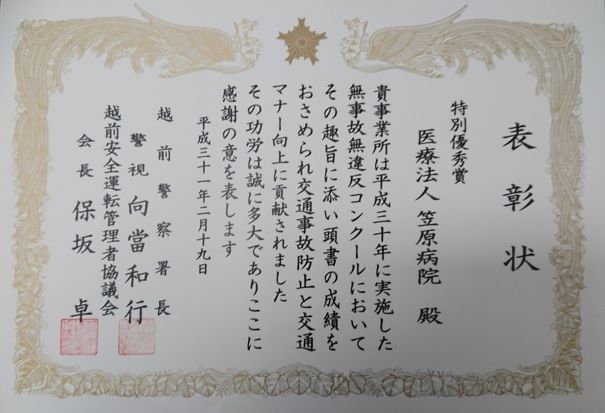 表彰状
特別優秀賞
医療法人 笠原病院 殿
貴事業所は平成三十年に実施した
無事故無違反コンクールにおいて
その趣旨に添い頭書の成績を
おさめられ交通事故防止と交通
マナー向上に貢献されました
その功労は誠に多大でありここに
感謝の意を表します
平成三十一年二月十九日
越前警察署長
警視 向當和行
越前安全運転管理者協議会
会長 保坂 卓